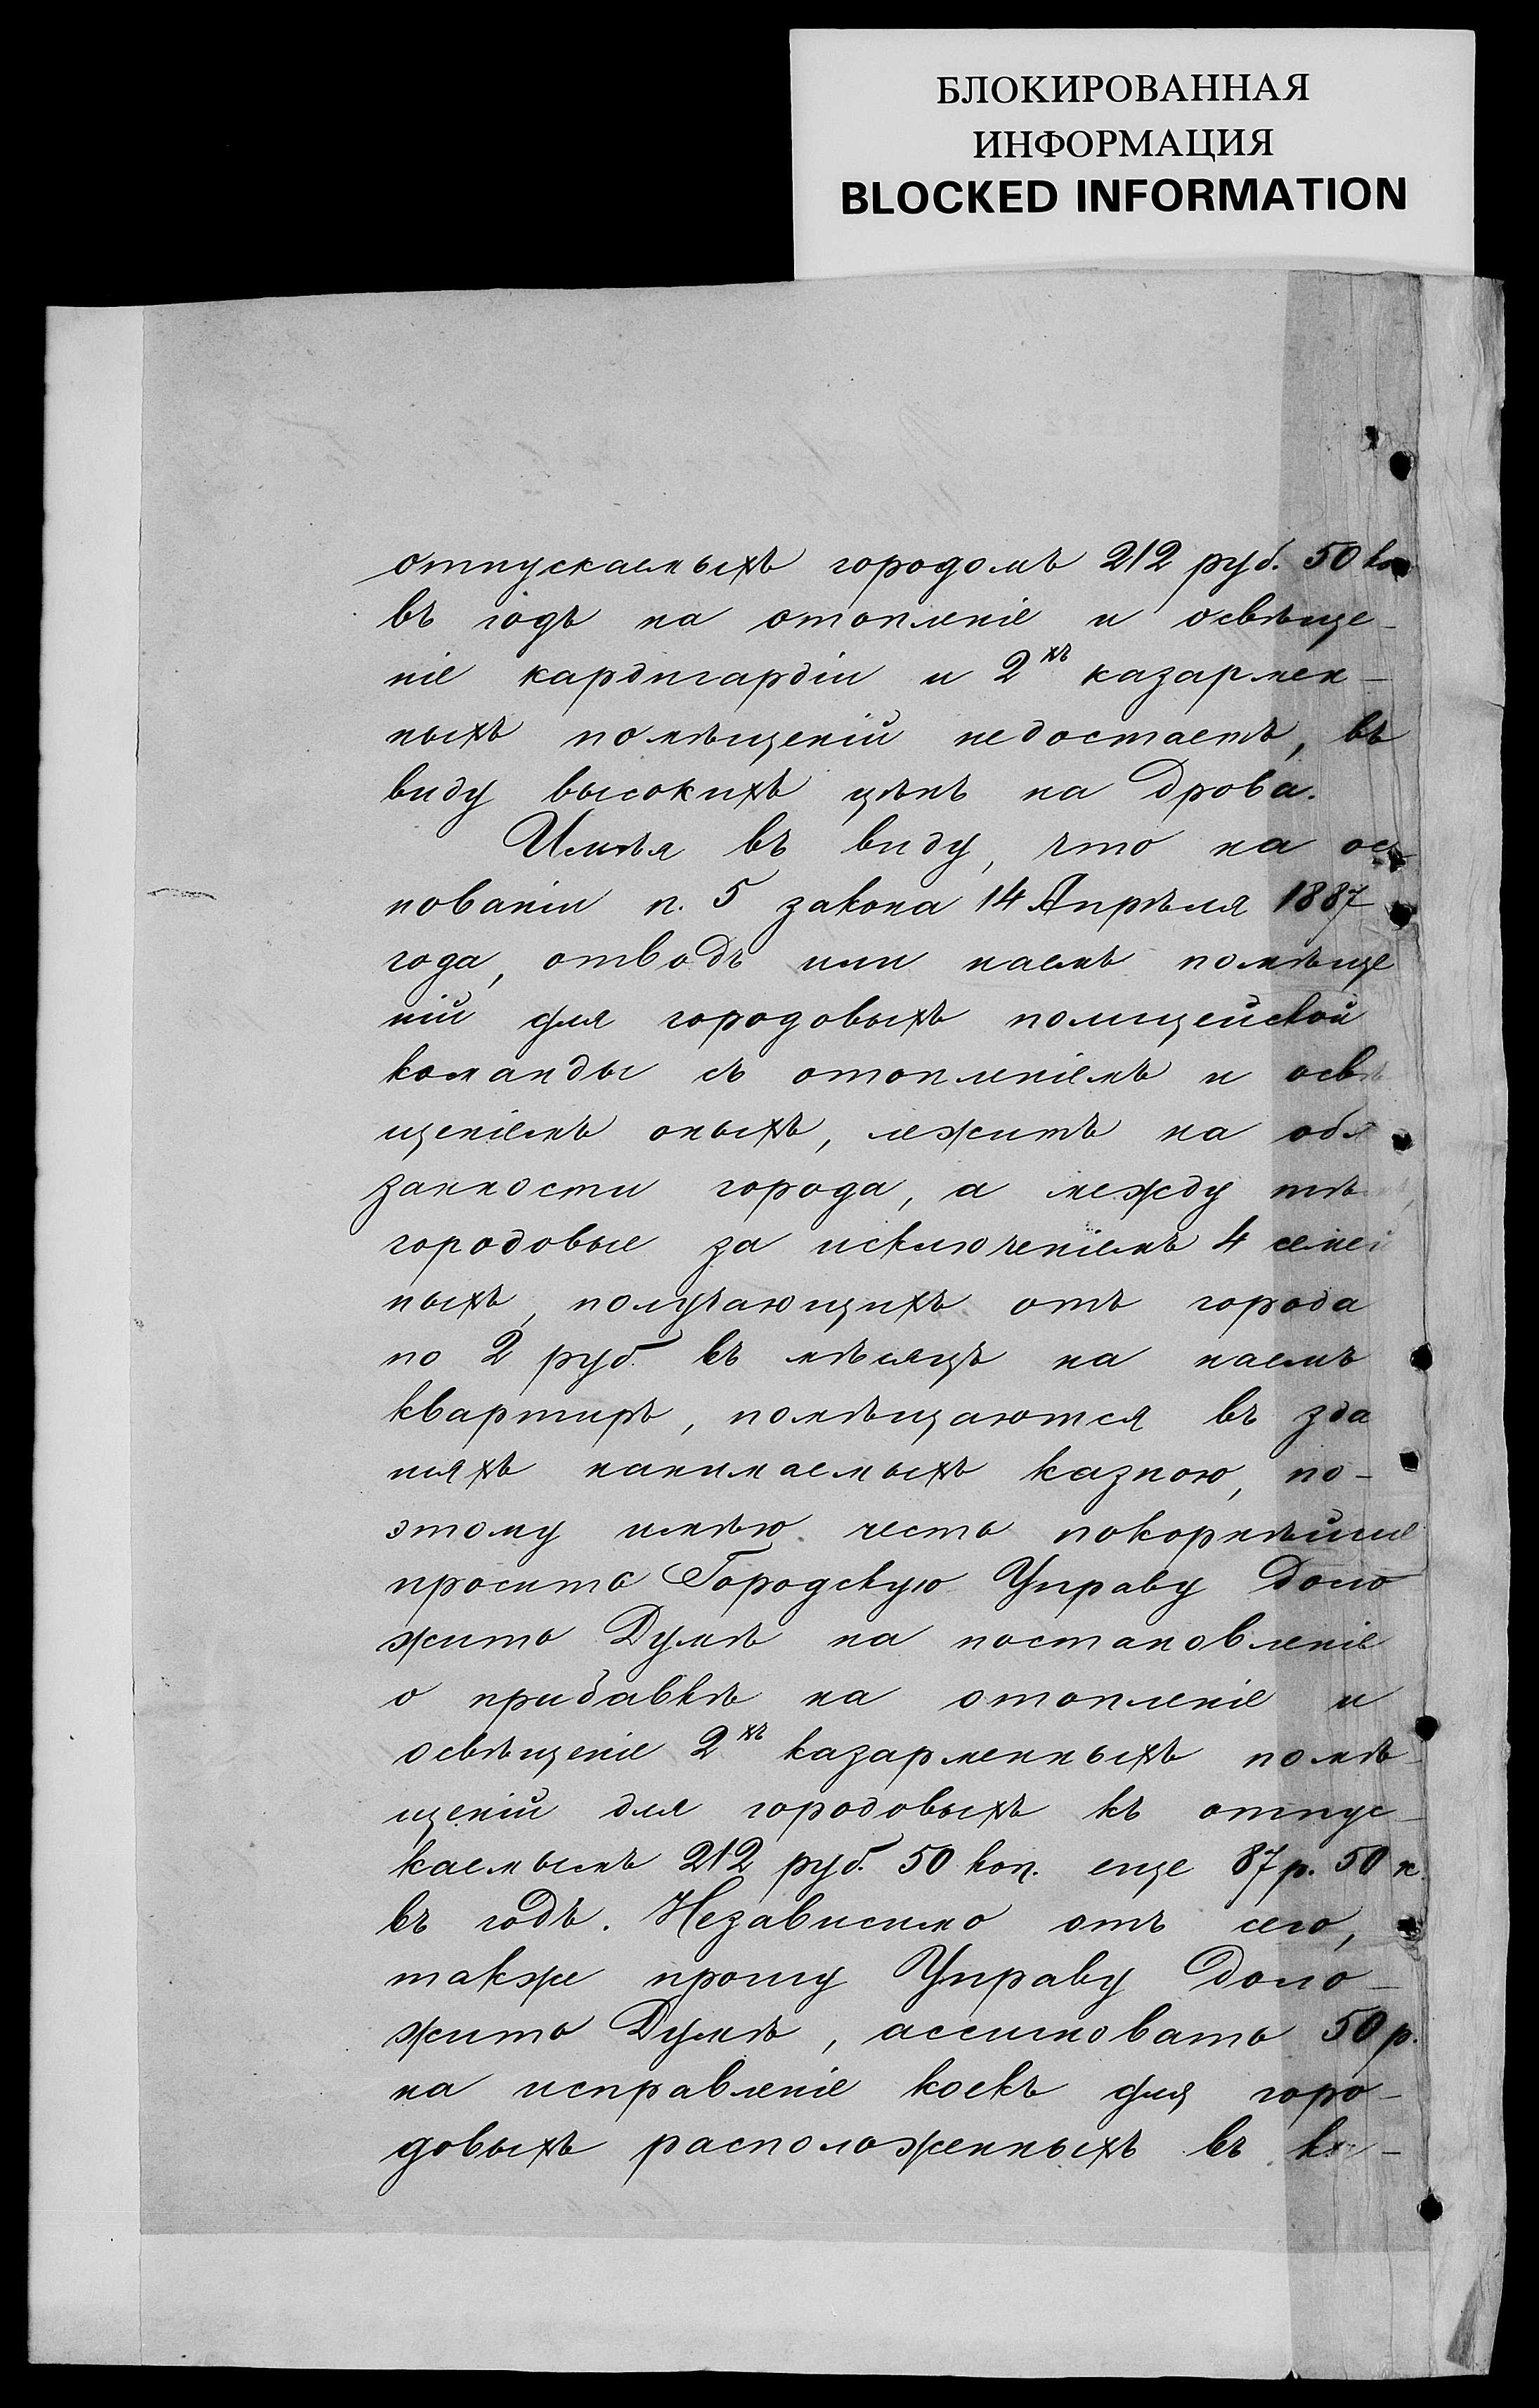 БЛОКИРОВАННАЯ
ИНФОРМАЦИЯ
BLOCKED INFORMATION
отпускаемыхъ городомъ 212 руб. 50 ко
въ годъ на отопленіе и освѣще-
ніе кардигардіи и 2хъ казармен-
ныхъ помѣщеній недостаетъ, въ
виду высокихъ цѣнъ на дрова.
Имѣя въ виду, что на ос-
нованіи п. 5 закона 14 Апрѣля 1887
года, отводъ или наемъ помѣще
ній для городовыхъ полицейской
команды съ отопленіемъ и освѣ
щеніемъ оныхъ, лежитъ на обя
занности города, а между тѣмъ,
городовые за исключеніемъ 4 семей
ныхъ, получающихъ отъ города
по 2 руб. въ мѣсяцъ на наемъ
квартиръ, помѣщаются въ зда
ніяхъ нанимаемыхъ казною, по-
этому имѣю честь покорнѣйше
просить Городскую Управу доло
жить Думѣ на постановленіе
о прибавкѣ на отопленіе и
освѣщеніе 2хъ казарменныхъ помѣ-
щеній для городовыхъ къ отпус-
каемымъ 212 руб. 50 коп. еще 87 р. 50 к.
въ годъ. Независимо отъ сего,
также прошу Управу доло-
жить Думѣ, ассигновать 50 р.
на исправленіе коекъ для горо-
довыхъ расположенныхъ въ ка-